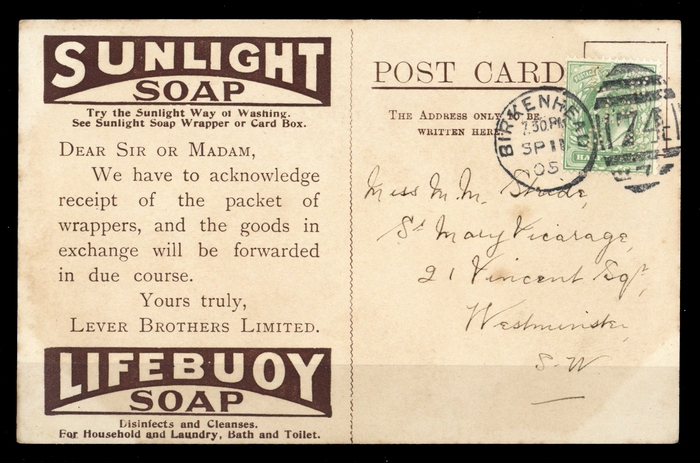 SUNLIGHT
SOAP
Try the Sunlight Way of Washing.
See Sunlight Soap Wrapper or Card Box.
DEAR SIR OR MADAM,
We have to acknowledge
receipt of the packet of
wrappers, and the goods in
exchange will be forwarded
in due course.
Yours truly,
LEVER BROTHERS LIMITED.
LIFEBUOY
SOAP
Disinfects and Cleanses.
For Household and Laundry, Bath and Toilet.
POST CARD
THE ADDRESS ONLY TO BE
WRITTEN HERE
BIRKENHEAD
7.30.PM
SP 11
05
Miss M. M.
St Mary Vicarage,
21 Vincent Sqr,
Westminster,
S.W